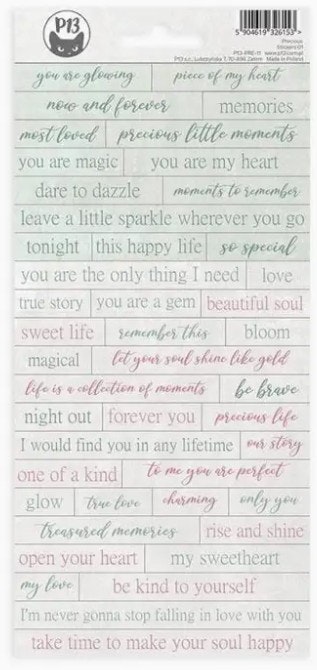 P13
5 904619 326153 >
Precious
Stickers 01
P13-PRE-11 www.p13.com.pl
Made in Poland
you are glowing piece of my heart
now and forever memories
most loved precious little moments
you are magic you are my heart
dare to dazzle moments to remember
leave a little sparkle wherever you go
tonight this happy life so special
you are the only thing I need love
true story you are a gem beautiful soul
sweet life remember this bloom
magical let your soul shine like gold
life is a collection of moments be brave
night out forever you precious life
I would find you in any lifetime our story
one of a kind to me you are perfect
glow true love charming only you
treasured memories rise and shine
open your heart my sweetheart
my love be kind to yourself
I'm never gonna stop falling in love with you
take time to make your soul happy